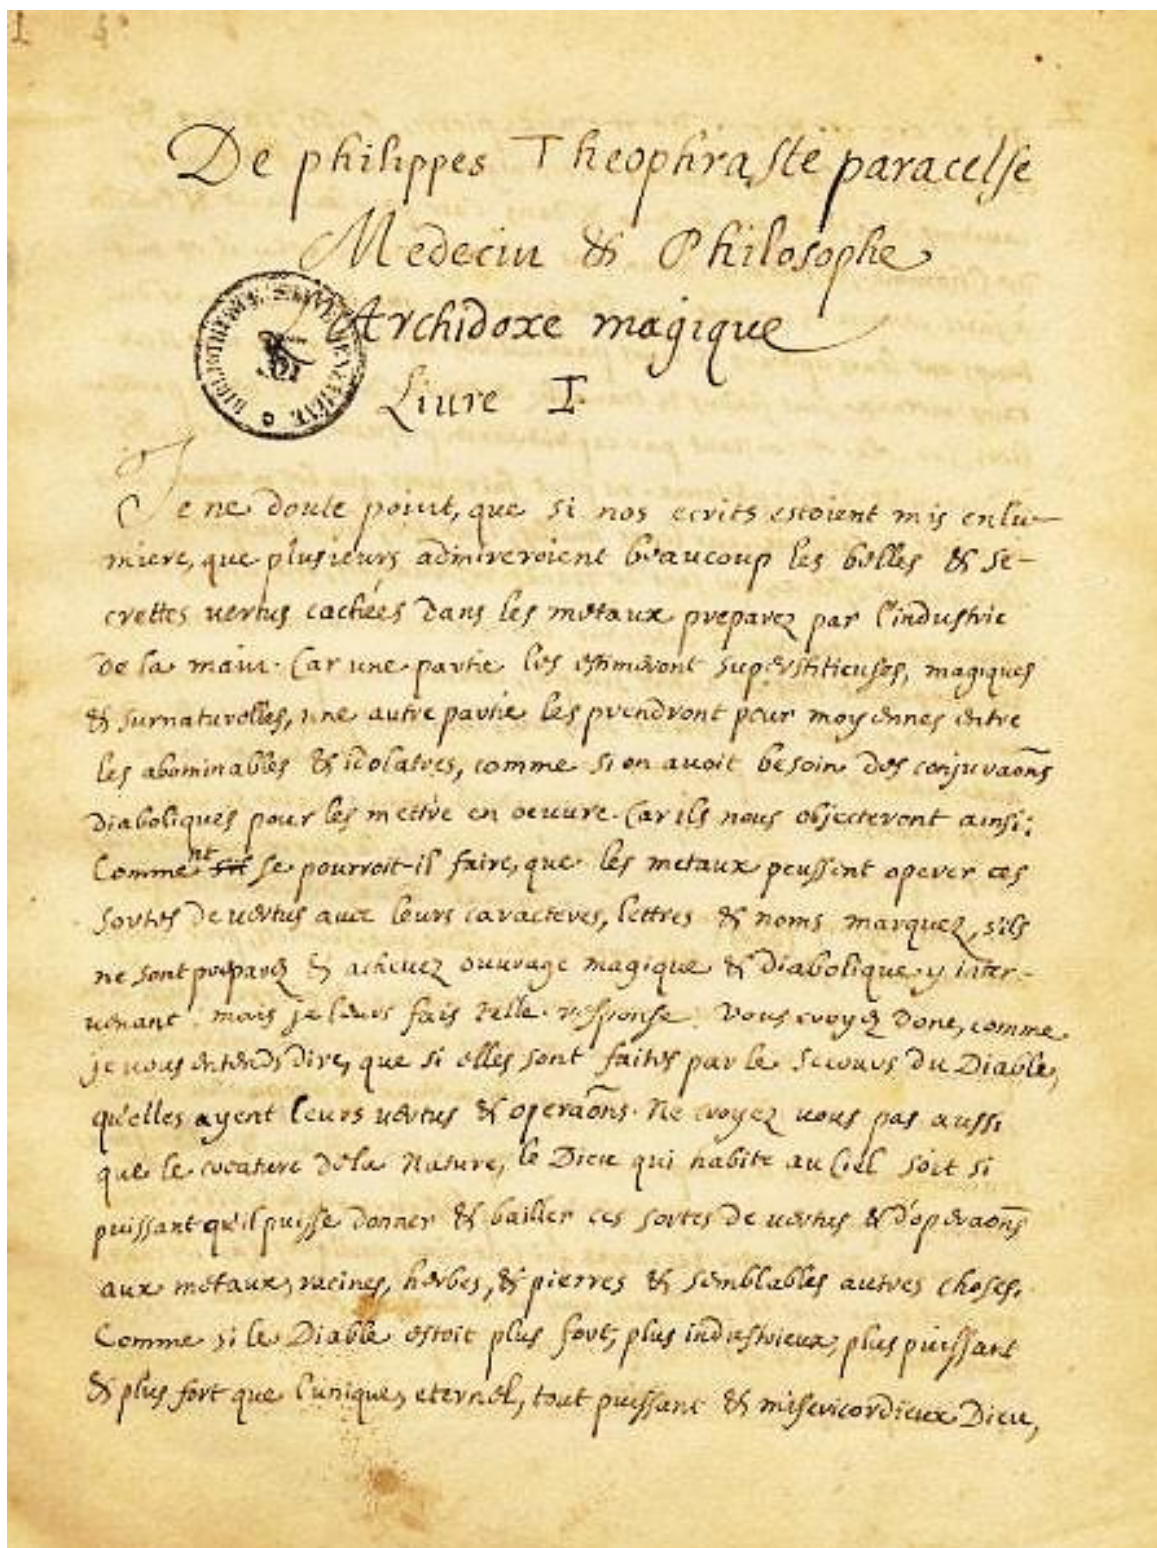 1
De philippes Theophraste paracelse
Medecin & Philosophe
L'Archidoxe magique
Liure I
BIBLIOTHEQUE SAINTE GENEVIEVE
Je ne doute point, que si nos ecrits estoient mis en lu-
miere, que plusieurs admireroient beaucoup les belles & se-
crettes vertus cachées dans les metaux preparez par l'industrie
de la main. Car une partie les estimeront superstitieuses, magiques
& surnaturelles, une autre partie les prendront pour moyennes entre
les abominables & idolatres, comme si on avoit besoin des conjuraõns
diaboliques pour les mettre en oeuure. Car ils nous objecteront ainsi:
Comment se pourroit-il faire, que les metaux peussent operer ces
sortes de uertus auec leurs caracteres, lettres & noms marquez, s'ils
ne sont preparez & acheuez ouurage magique & diabolique y inter-
uenant: mais je leurs fais telle response: Vous croyez donc, comme
je uous entends dire, que si elles sont faites par le secours du Diable,
qu'elles ayent leurs uertus & operaõns. Ne croyez uous pas aussi
que le createur de la Nature, le Dieu qui habite au Ciel soit si
puissant qu'il puisse donner & bailler ces sortes de uertus & d'operaõns
aux metaux, racines, herbes, & pierres & semblables autres choses.
Comme si le Diable estoit plus fort, plus industrieux, plus puissant
& plus fort que l'unique, eternel, tout puissant & misericordieux Dieu,